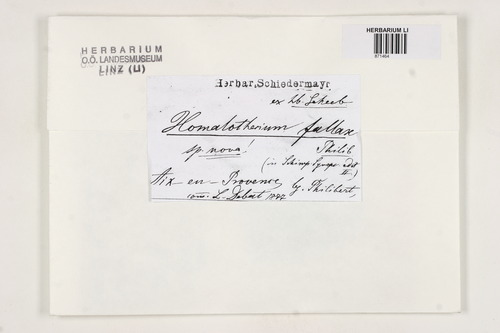 HERBARIUM
O.Ö. LANDESMUSEUM
LINZ (LI)
HERBARIUM LI
871464
Herbar. Schiedermayr
ex hb.
Homalothecium fallax
sp. nova!
Philib.
(in Schimp. Synops. edit II.)
Aix-en-Provence lg. Philibert,
com. L. 1877